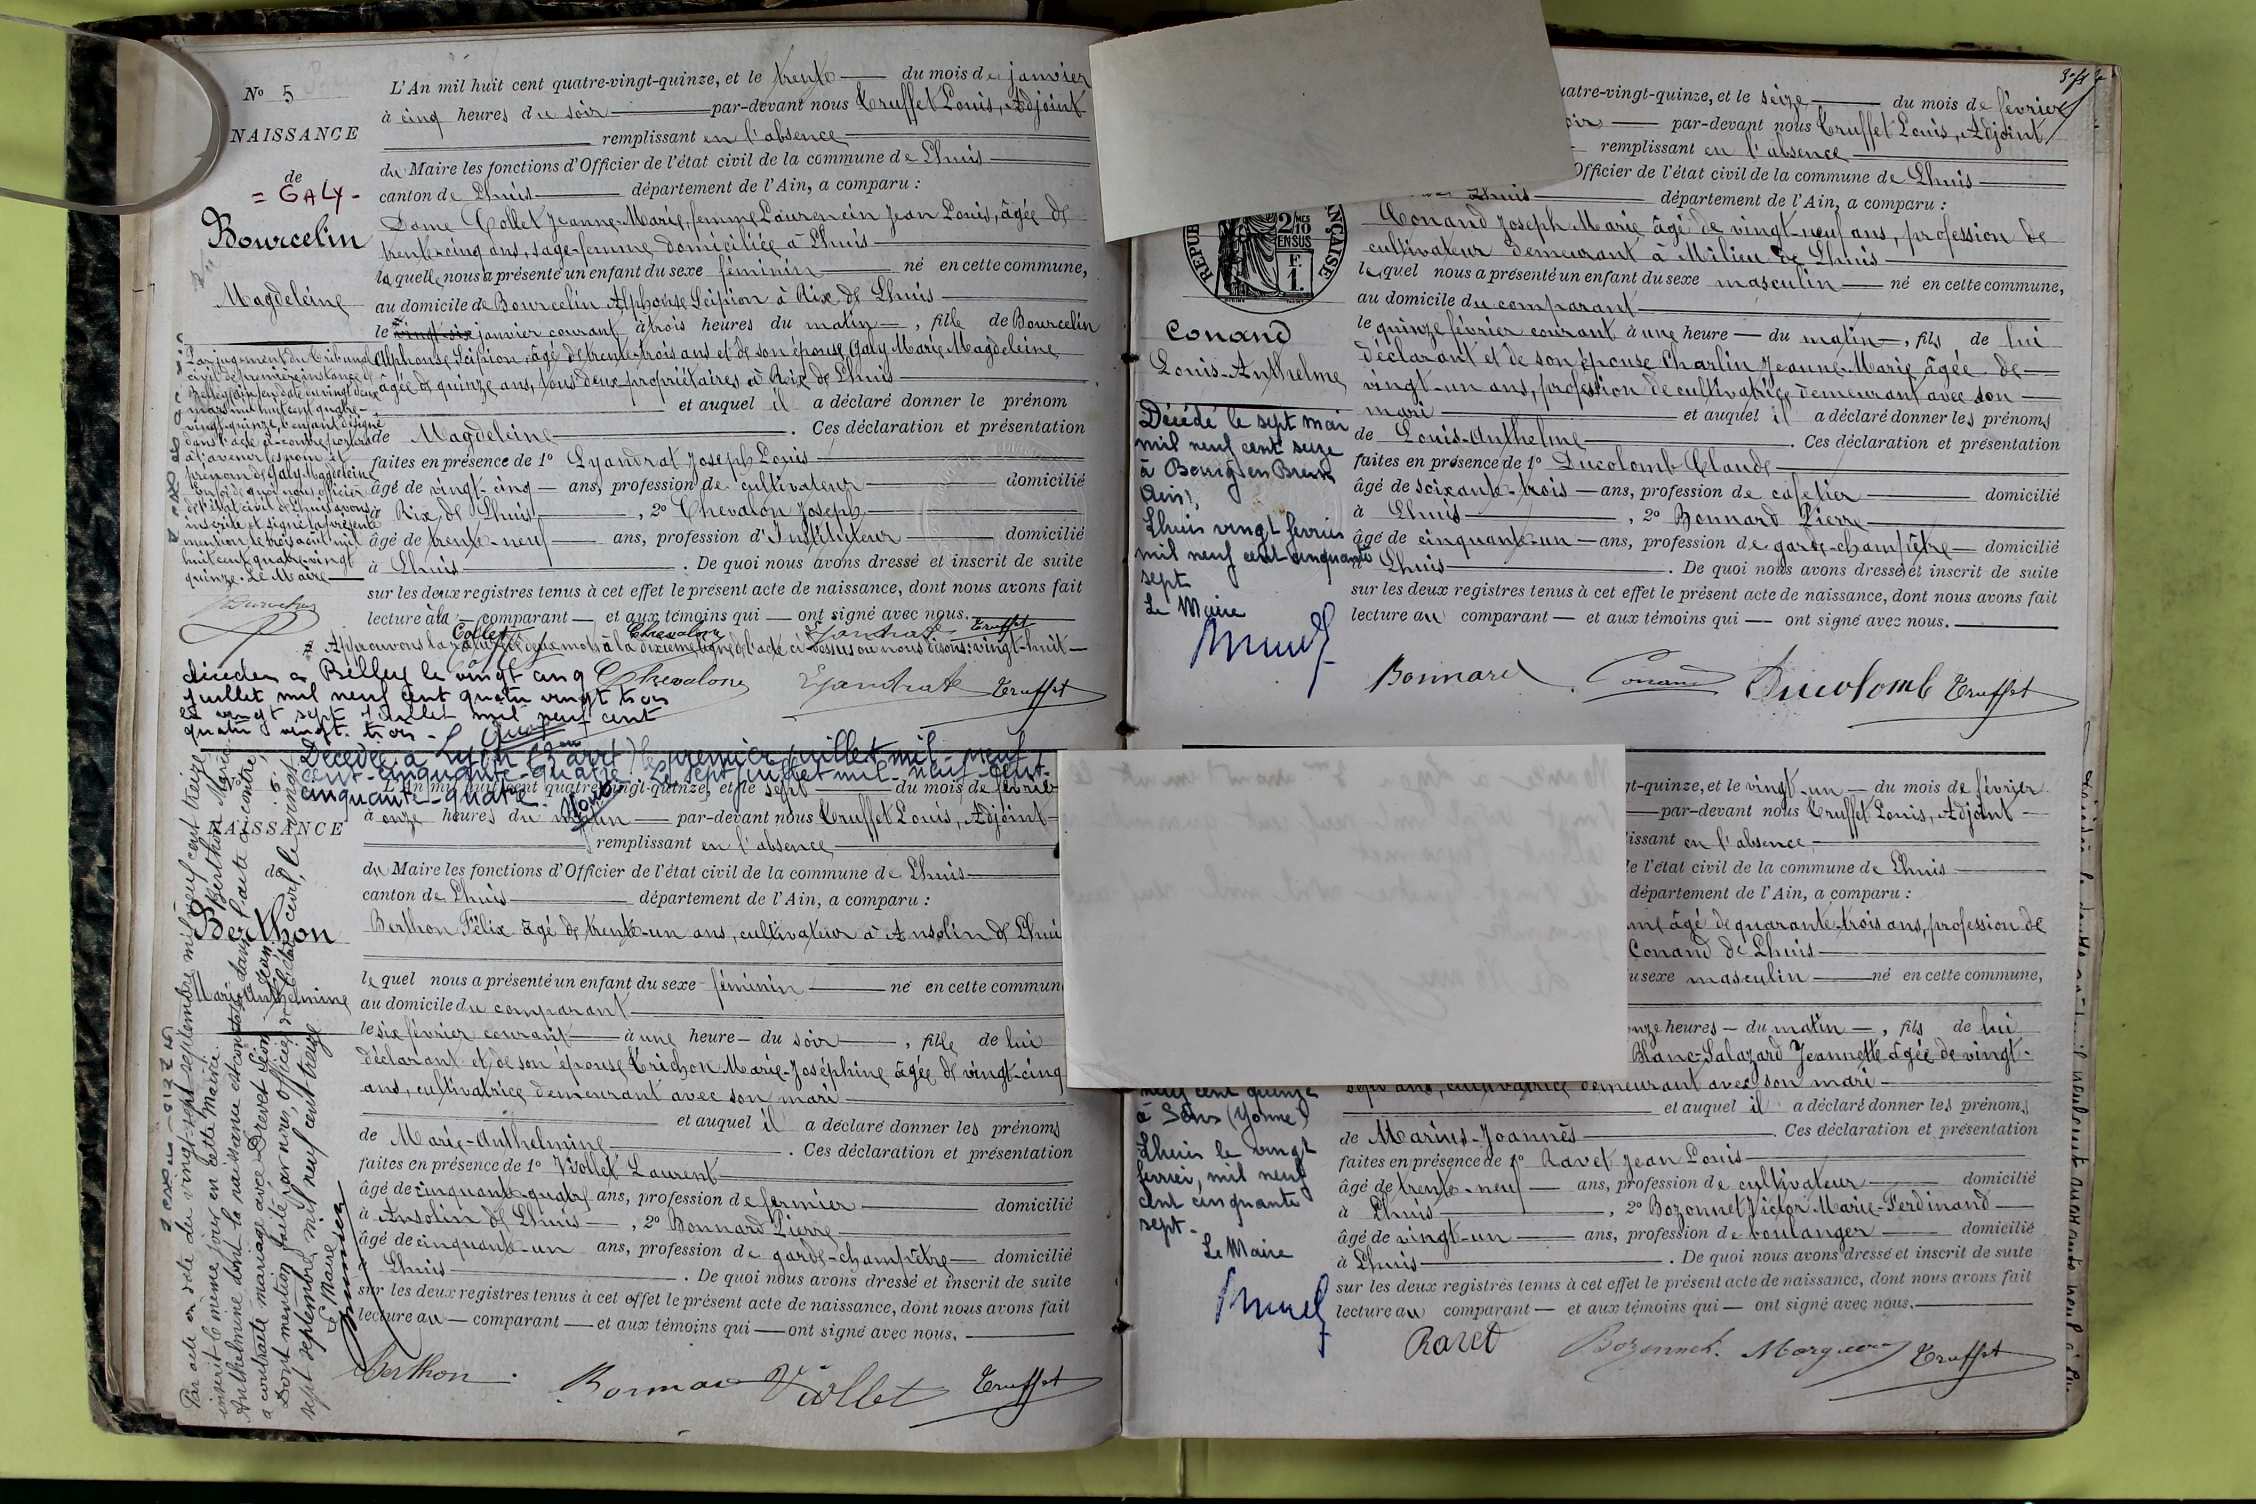 N° 5
NAISSANCE
de
= GALY -
Bourcelin
Magdeleine
L'An mil huit cent quatre-vingt-quinze, et le trente du mois de janvier
à cinq heures du soir par-devant nous Truffet Louis, Adjoint
remplissant en l'absence
du Maire les fonctions d'Officier de l'état civil de la commune de Lhuis
canton de Lhuis département de l'Ain, a comparu :
Dame Collet Jeanne-Marie, femme Laurencin Jean Louis, âgée de
trente cinq ans, sage-femme domiciliée à Lhuis
laquelle nous a présenté un enfant du sexe féminin né en cette commune,
au domicile de Bourcelin Alphonse Scipion à Rix de Lhuis
le vingt-six janvier courant à trois heures du matin, fille de Bourcelin
Alphonse Scipion, âgé de trente-trois ans et de son épouse Galy Marie Magdeleine
âgée de quinze ans, tous deux propriétaires à Rix de Lhuis
et auquel il a déclaré donner le prénom
de Magdeleine. Ces déclaration et présentation
faites en présence de 1° Lyandrat Joseph Louis
âgé de vingt-cinq ans, profession de cultivateur domicilié
à Rix de Lhuis, 2° Chevalon Joseph
âgé de trente-neuf ans, profession d'Instituteur domicilié
à Lhuis. De quoi nous avons dressé et inscrit de suite
sur les deux registres tenus à cet effet le présent acte de naissance, dont nous avons fait
lecture à la comparant et aux témoins qui ont signé avec nous.
Collet Chevalon Lyandrat Truffet
Approuvons la rature de deux mots à la dixième ligne de l'acte ci-dessus ou nous disons: vingt-huit
Chevalon Lyandrat Truffet
Par jugement du Tribunal
civil de première instance de
Belley (Ain) en date du vingt deux
mars mil huit cent quatre-
vingt-quinze, l'enfant désigné
dans l'acte ci-contre portera
à l'avenir les nom et
prénom de Galy Magdeleine
En foi de quoi nous officier
de l'état civil de Lhuis avons
inscrit et signé la présente
mention le trois août mil
huit cent quatre-vingt
quinze. Le Maire
décédée à Belley le vingt cinq
juillet mil neuf cent quatre vingt trois
le vingt sept juillet mil neuf cent
quatre vingt trois.
Décédée à Lyon (arrt) le premier juillet mil-neuf
cent-cinquante-quatre. Le sept juillet mil-neuf-cent-
cinquante-quatre.
NAISSANCE
de
Berthon
Marie-Anthelmine
L'An mil huit cent quatre-vingt-quinze, et le sept du mois de févrie
à onze heures du matin par-devant nous Truffet Louis, Adjoint
remplissant en l'absence
du Maire les fonctions d'Officier de l'état civil de la commune de Lhuis
canton de Lhuis département de l'Ain, a comparu :
Berthon Félix âgé de trente-un ans, cultivateur à Ansolin de Lhui
lequel nous a présenté un enfant du sexe féminin né en cette commun
au domicile du comparant
le six février courant à une heure du soir, fille de lui
déclarant et de son épouse Trichon Marie-Joséphine âgée de vingt-cinq
ans, cultivatrice demeurant avec son mari
et auquel il a déclaré donner les prénoms
de Marie-Anthelmine. Ces déclaration et présentation
faites en présence de 1° Viollet Laurent
âgé de cinquante-quatre ans, profession de fermier domicilié
à Ansolin de Lhuis, 2° Bonnard Pierre
âgé de cinquante-un ans, profession de garde-champêtre domicilié
à Lhuis. De quoi nous avons dressé et inscrit de suite
sur les deux registres tenus à cet effet le présent acte de naissance, dont nous avons fait
lecture au comparant et aux témoins qui ont signé avec nous.
Berthon Bonnard Viollet Truffet
Par acte en date du vingt-sept septembre mil neuf cent treize
inscrit le même jour en cette Mairie. Berthon Marie
Anthelmine dont la naissance est constatée dans l'acte ci-contre,
a contracté mariage avec Drevet Léon Jean
Dont mention faite par nous, officier de l'état civil, le vingt
sept septembre mil neuf cent treize
Le Maire
uatre-vingt-quinze, et le seize du mois de février
oir par-devant nous Truffet Louis, Adjoint
remplissant en l'absence
Officier de l'état civil de la commune de Lhuis
Lhuis département de l'Ain, a comparu :
RÉPUB ANÇAISE
2/10
EN SUS
F.
1.
Conand
Louis-Anthelme
Conand Joseph Marie âgé de vingt-neuf ans, profession de
cultivateur demeurant à Milieu de Lhuis
lequel nous a présenté un enfant du sexe masculin né en cette commune,
au domicile du comparant
le quinze février courant à une heure du matin, fils de lui
déclarant et de son épouse Charlin Jeanne-Marie âgée de
vingt-un ans, profession de cultivatrice demeurant avec son
mari et auquel il a déclaré donner les prénoms
de Louis-Anthelme. Ces déclaration et présentation
faites en présence de 1° Ducolomb Claude
âgé de soixante-trois ans, profession de cafetier domicilié
à Lhuis, 2° Bonnard Pierre
âgé de cinquante-un ans, profession de garde-champêtre domicilié
à Lhuis. De quoi nous avons dressé et inscrit de suite
sur les deux registres tenus à cet effet le présent acte de naissance, dont nous avons fait
lecture au comparant et aux témoins qui ont signé avec nous.
Bonnard Conand Ducolomb Truffet
Décédé le sept mai
mil neuf cent seize
à Bourg en Bresse
Ain)
Lhuis vingt fevrier
mil neuf cent cinquante
sept
Le Maire
gt-quinze, et le vingt-un du mois de février
par-devant nous Truffet Louis, Adjoint
issant en l'absence
e l'état civil de la commune de Lhuis
département de l'Ain, a comparu :
me âgé de quarante-trois ans, profession de
Conand de Lhuis
u sexe masculin né en cette commune,
onze heures du matin, fils de lui
Blanc-Salazard Jeannette âgée de vingt-
sept ans, cultivatrice demeurant avec son mari
et auquel il a déclaré donner les prénoms
de Marius-Joannès. Ces déclaration et présentation
faites en présence de 1° Ravet Jean Louis
âgé de trente-neuf ans, profession de cultivateur domicilié
à Lhuis, 2° Bozonnet Victor Marie-Ferdinand
âgé de vingt-un ans, profession de boulanger domicilié
à Lhuis. De quoi nous avons dressé et inscrit de suite
sur les deux registres tenus à cet effet le présent acte de naissance, dont nous avons fait
lecture au comparant et aux témoins qui ont signé avec nous.
Ravet Bozonnet Truffet
neuf cent quinze
à Sens (Yonne)
Lhuis le vingt
fevrier, mil neuf
cent cinquante
sept.
Le Maire